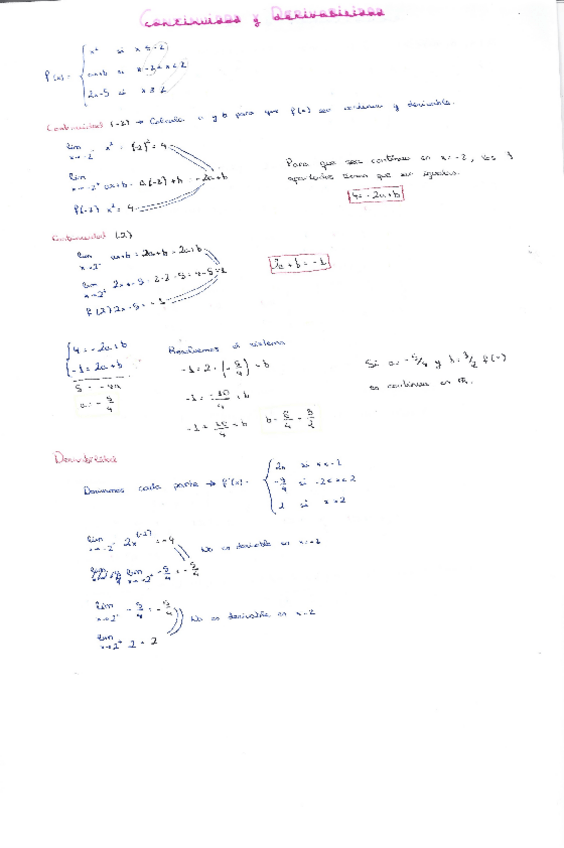 Continuidad y Derivabilidad
x² si x ≤ -2
f(x) = ax+b si -2 < x < 2
2x-5 si x ≥ 2
Continuidad (-2) → Calcular a y b para que f(x) sea continua y derivable.
lim x→-2⁻ x² = (-2)² = 4
lim x→-2⁺ ax+b = a(-2)+b = -2a+b
f(-2) x² = 4
Para que sea continua en x=-2, los 3
apartados tienen que ser iguales.
4 = -2a+b
Continuidad (2)
lim x→2⁻ ax+b = 2a+b = 2a+b
lim x→2⁺ 2x-5 = 2·2-5 = 4-5 = -1
f(2) 2x-5 = -1
2a+b = -1
4 = -2a+b
-1 = 2a+b
5 = -4a
a = -5/4
Resolvemos el sistema
-1 = 2·(-5/4)+b
-1 = -10/4 + b
b = 6/4 = 3/2
Si a = -5/4 y b = 3/2 f(x)
es continua en ℝ.
Derivabilidad
Derivamos cada parte → f'(x) =
2x si x<-2
-5/4 si -2<x<2
2 si x>2
lim x→-2⁻ 2x (-2) = -4
No es derivable en x=-2
lim x→-2⁺ -5/4 = -5/4
lim x→2⁻ -5/4 = -5/4
No es derivable en x=2
lim x→2⁺ 2 = 2